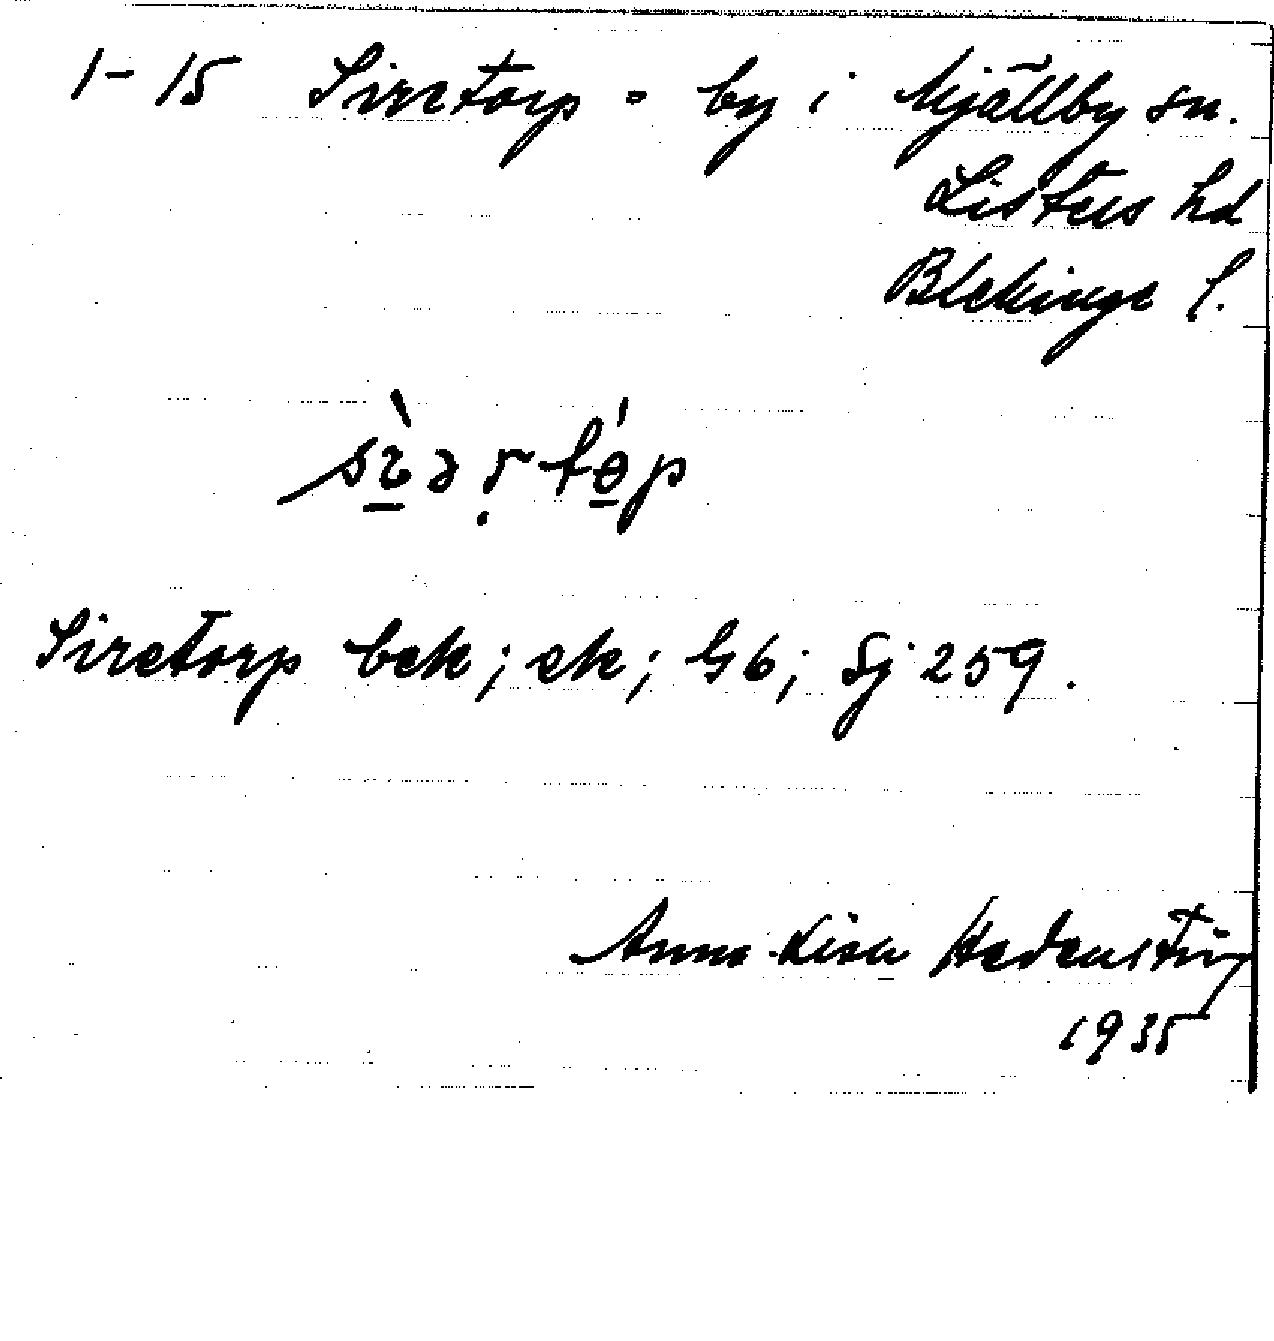 1-15 Siretorp = by i Mjällby sn.
Listers hd
Blekinge l.
Siretorp bek; ek; G6; Sj 259.
Anna-Lisa Hedenstierna
1935